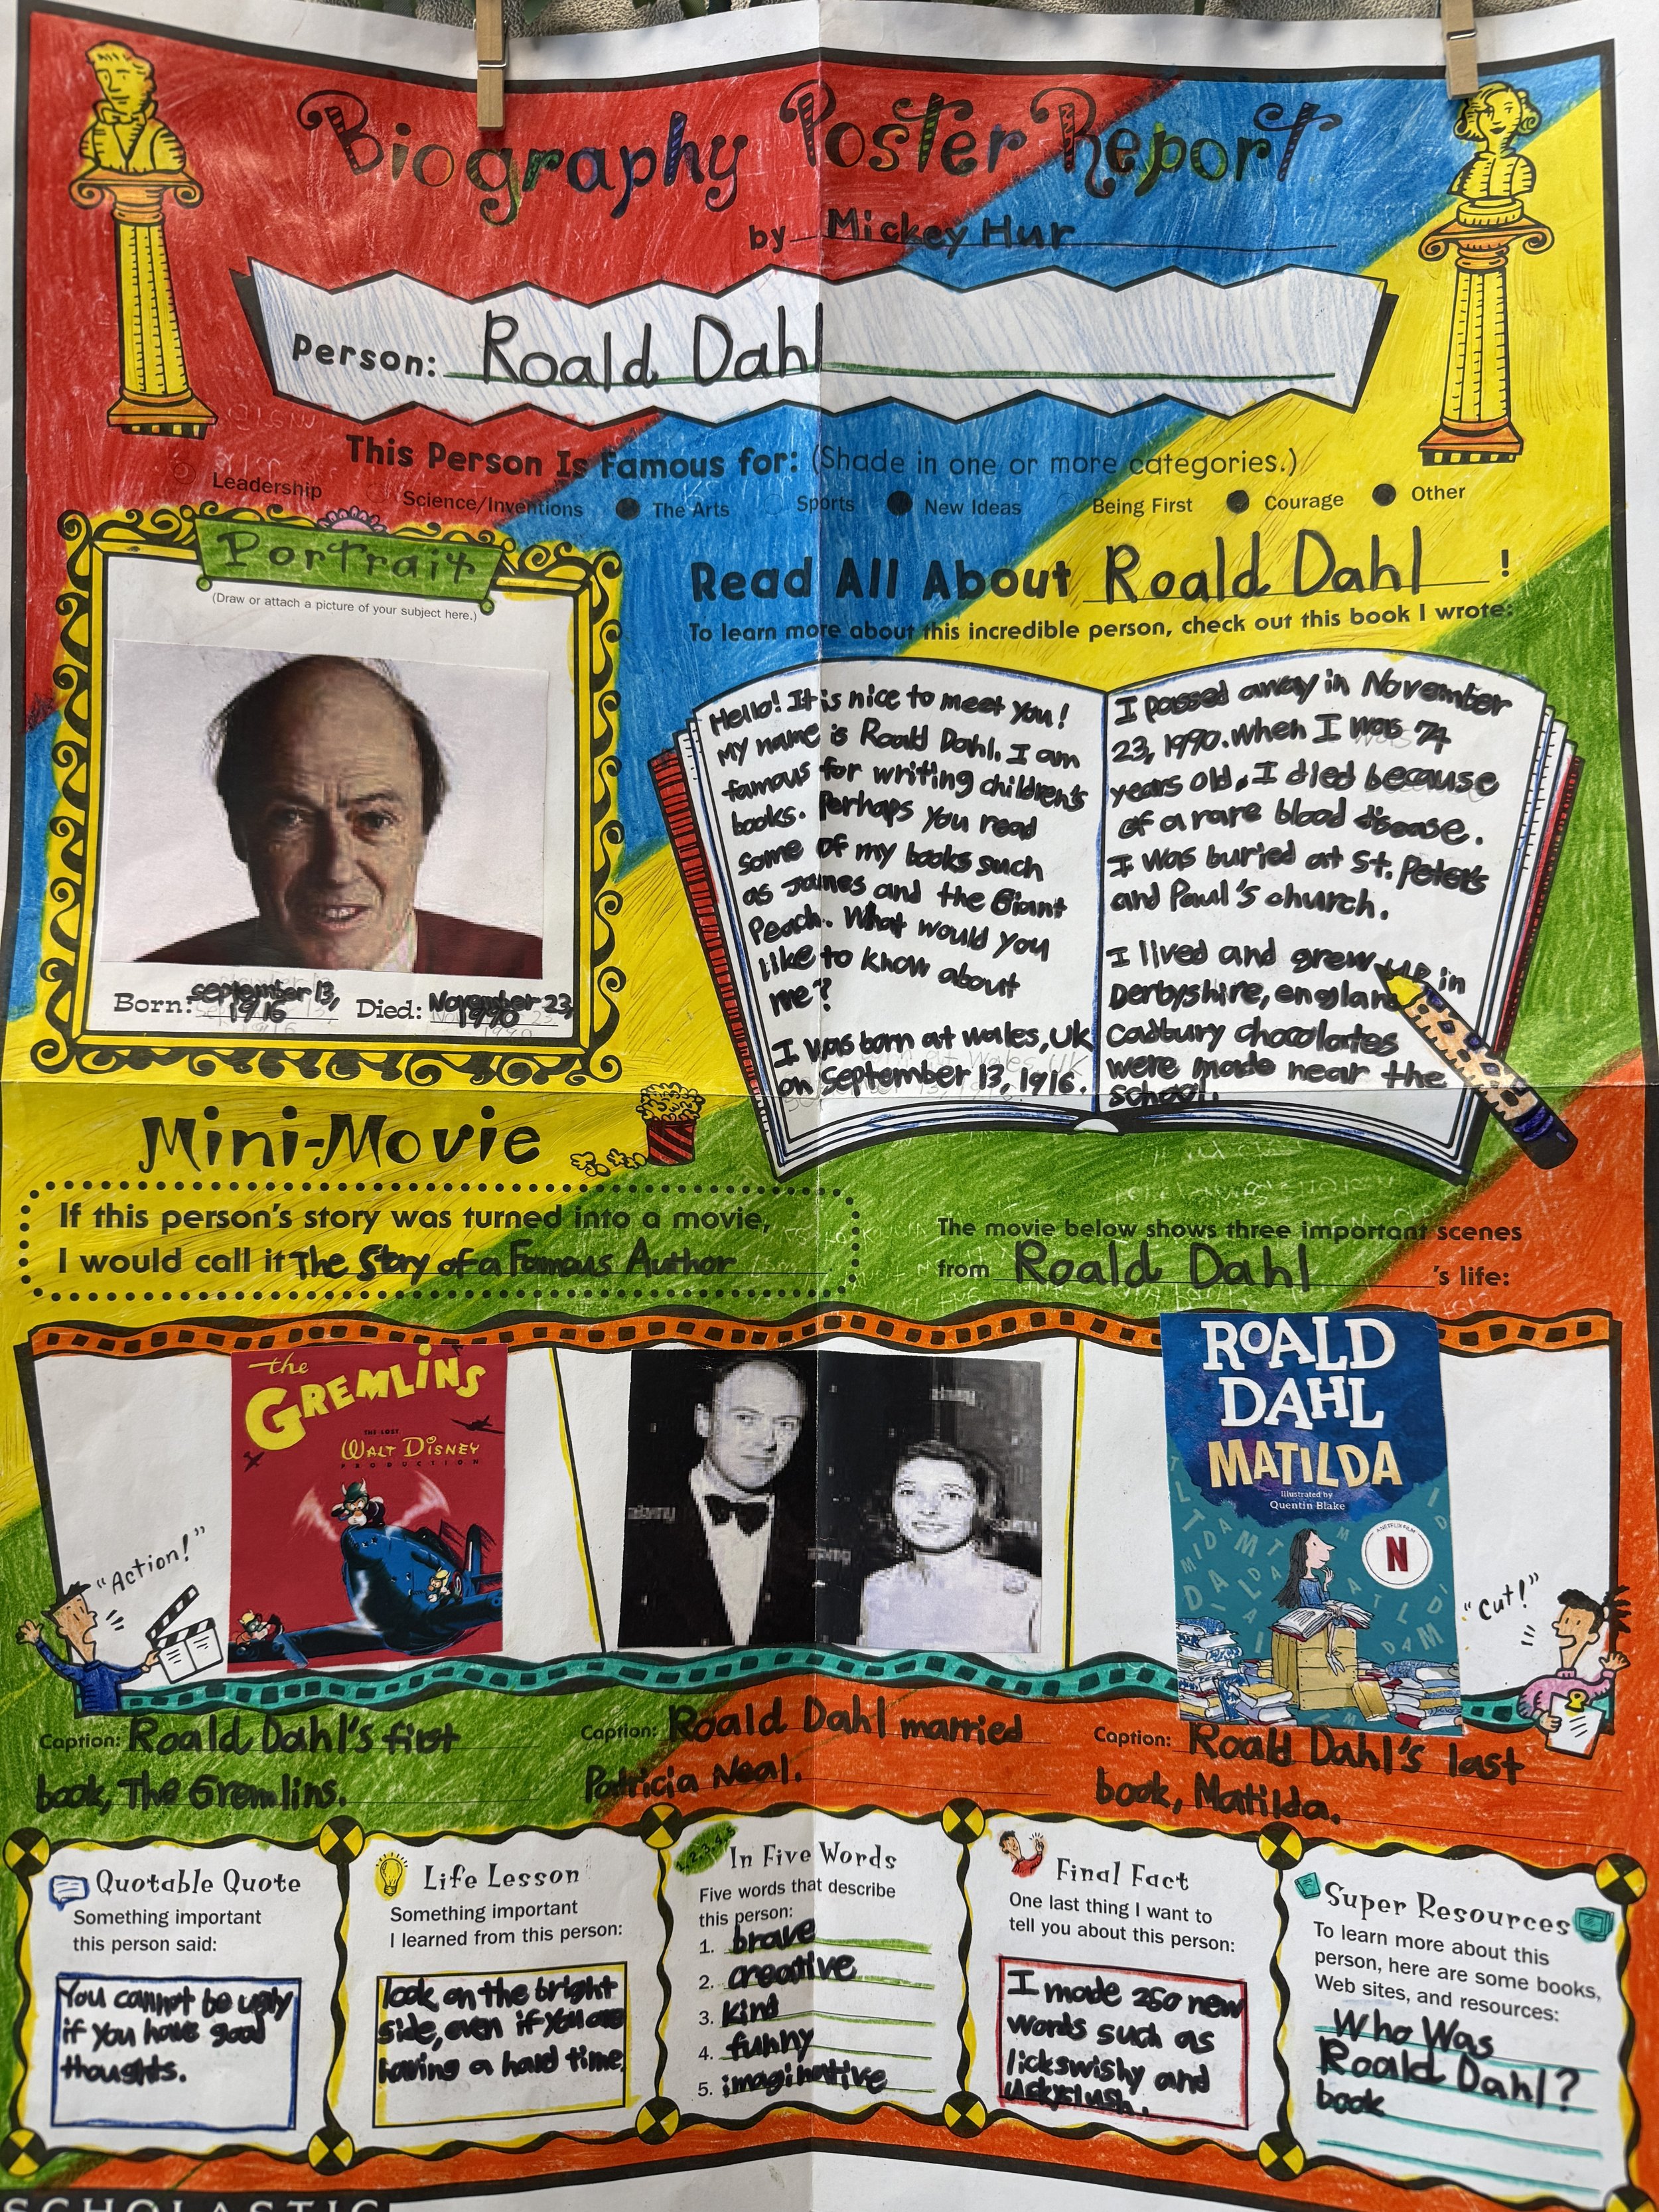 Biography Poster Report
by Mickey Hur
Person: Roald Dahl
This Person Is Famous for: (Shade in one or more categories.)
Leadership Science/Inventions The Arts Sports New Ideas Being First Courage Other
Portrait
(Draw or attach a picture of your subject here.)
Born: september 13, 1916
Died: November 23, 1990
Read All About Roald Dahl!
To learn more about this incredible person, check out this book I wrote:
Hello! It is nice to meet you!
My name is Roald Dahl. I am
famous for writing children's
books. Perhaps you read
some of my books such
as James and the Giant
Peach. What would you
like to know about
me?
I was born at wales, UK
on September 13, 1916.
I passed away in November
23, 1990. When I was 74
years old. I died because
of a rare blood disease.
I was buried at St. Peter's
and Paul's church.
I lived and grew up in
Derbyshire, england
Cadbury chocolates
were made near the
school.
Mini-Movie
If this person's story was turned into a movie,
I would call it The Story of a Famous Author
The movie below shows three important scenes
from Roald Dahl's life:
"Action!"
the
GREMLINS
THE LOST
WALT DISNEY
PRODUCTION
alamy
alamy
alamy
alamy
ROALD
DAHL
MATILDA
Illustrated by
Quentin Blake
A NETFLIX FILM
N
"Cut!"
Caption: Roald Dahl's first
book, The Gremlins.
Caption: Roald Dahl married
Patricia Neal.
Caption: Roald Dahl's last
book, Matilda.
Quotable Quote
Something important
this person said:
You cannot be ugly
if you have good
thoughts.
Life Lesson
Something important
I learned from this person:
look on the bright
side, even if you are
having a hard time.
1,2,3,4,5
In Five Words
Five words that describe
this person:
1. brave
2. creative
3. kind
4. funny
5. imaginative
Final Fact
One last thing I want to
tell you about this person:
I made 250 new
words such as
lickswishy and
Super Resources
To learn more about this
person, here are some books,
Web sites, and resources:
Who Was
Roald Dahl?
book
SCHOLASTIC